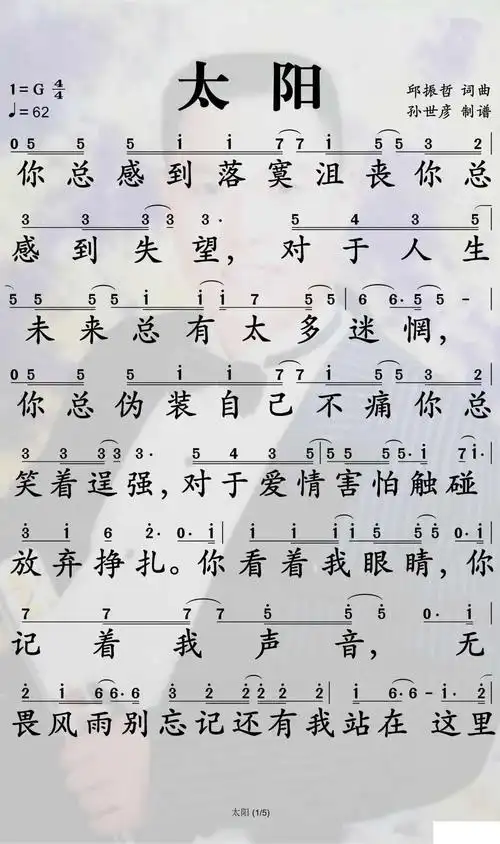 太阳
1=G 4/4
♩=62
邱振哲 词曲
孙世彦 制谱
0 5 5 5 i i 7 7 i 5 5 3 2
你总感到落寞沮丧你总
3 3 3 3 3 3· 5 4 3 5
感到失望，对于人生
5 5 5 5 5 i i i 7 5 5 6 6· 5 5 -
未来总有太多迷惘，
0 5 5 5 i i 7 7 i 5 5 3 2
你总伪装自己不痛你总
3 3 3 3 3 3· 5 4 3 5 5 5 5 5 5· i 7 i·
笑着逞强，对于爱情害怕触碰
3 i 6 2· 0· i i i i i i 5 5 5 0· i
放弃挣扎。你看着我眼睛，你
7 7 7 7 5 5 5 0· i
记着我声音，无
2 i 6 6 6· 3 2 2 2 2 2 2 i 6 6· - i 2
畏风雨别忘记还有我站在 这里
太阳 (1/5)